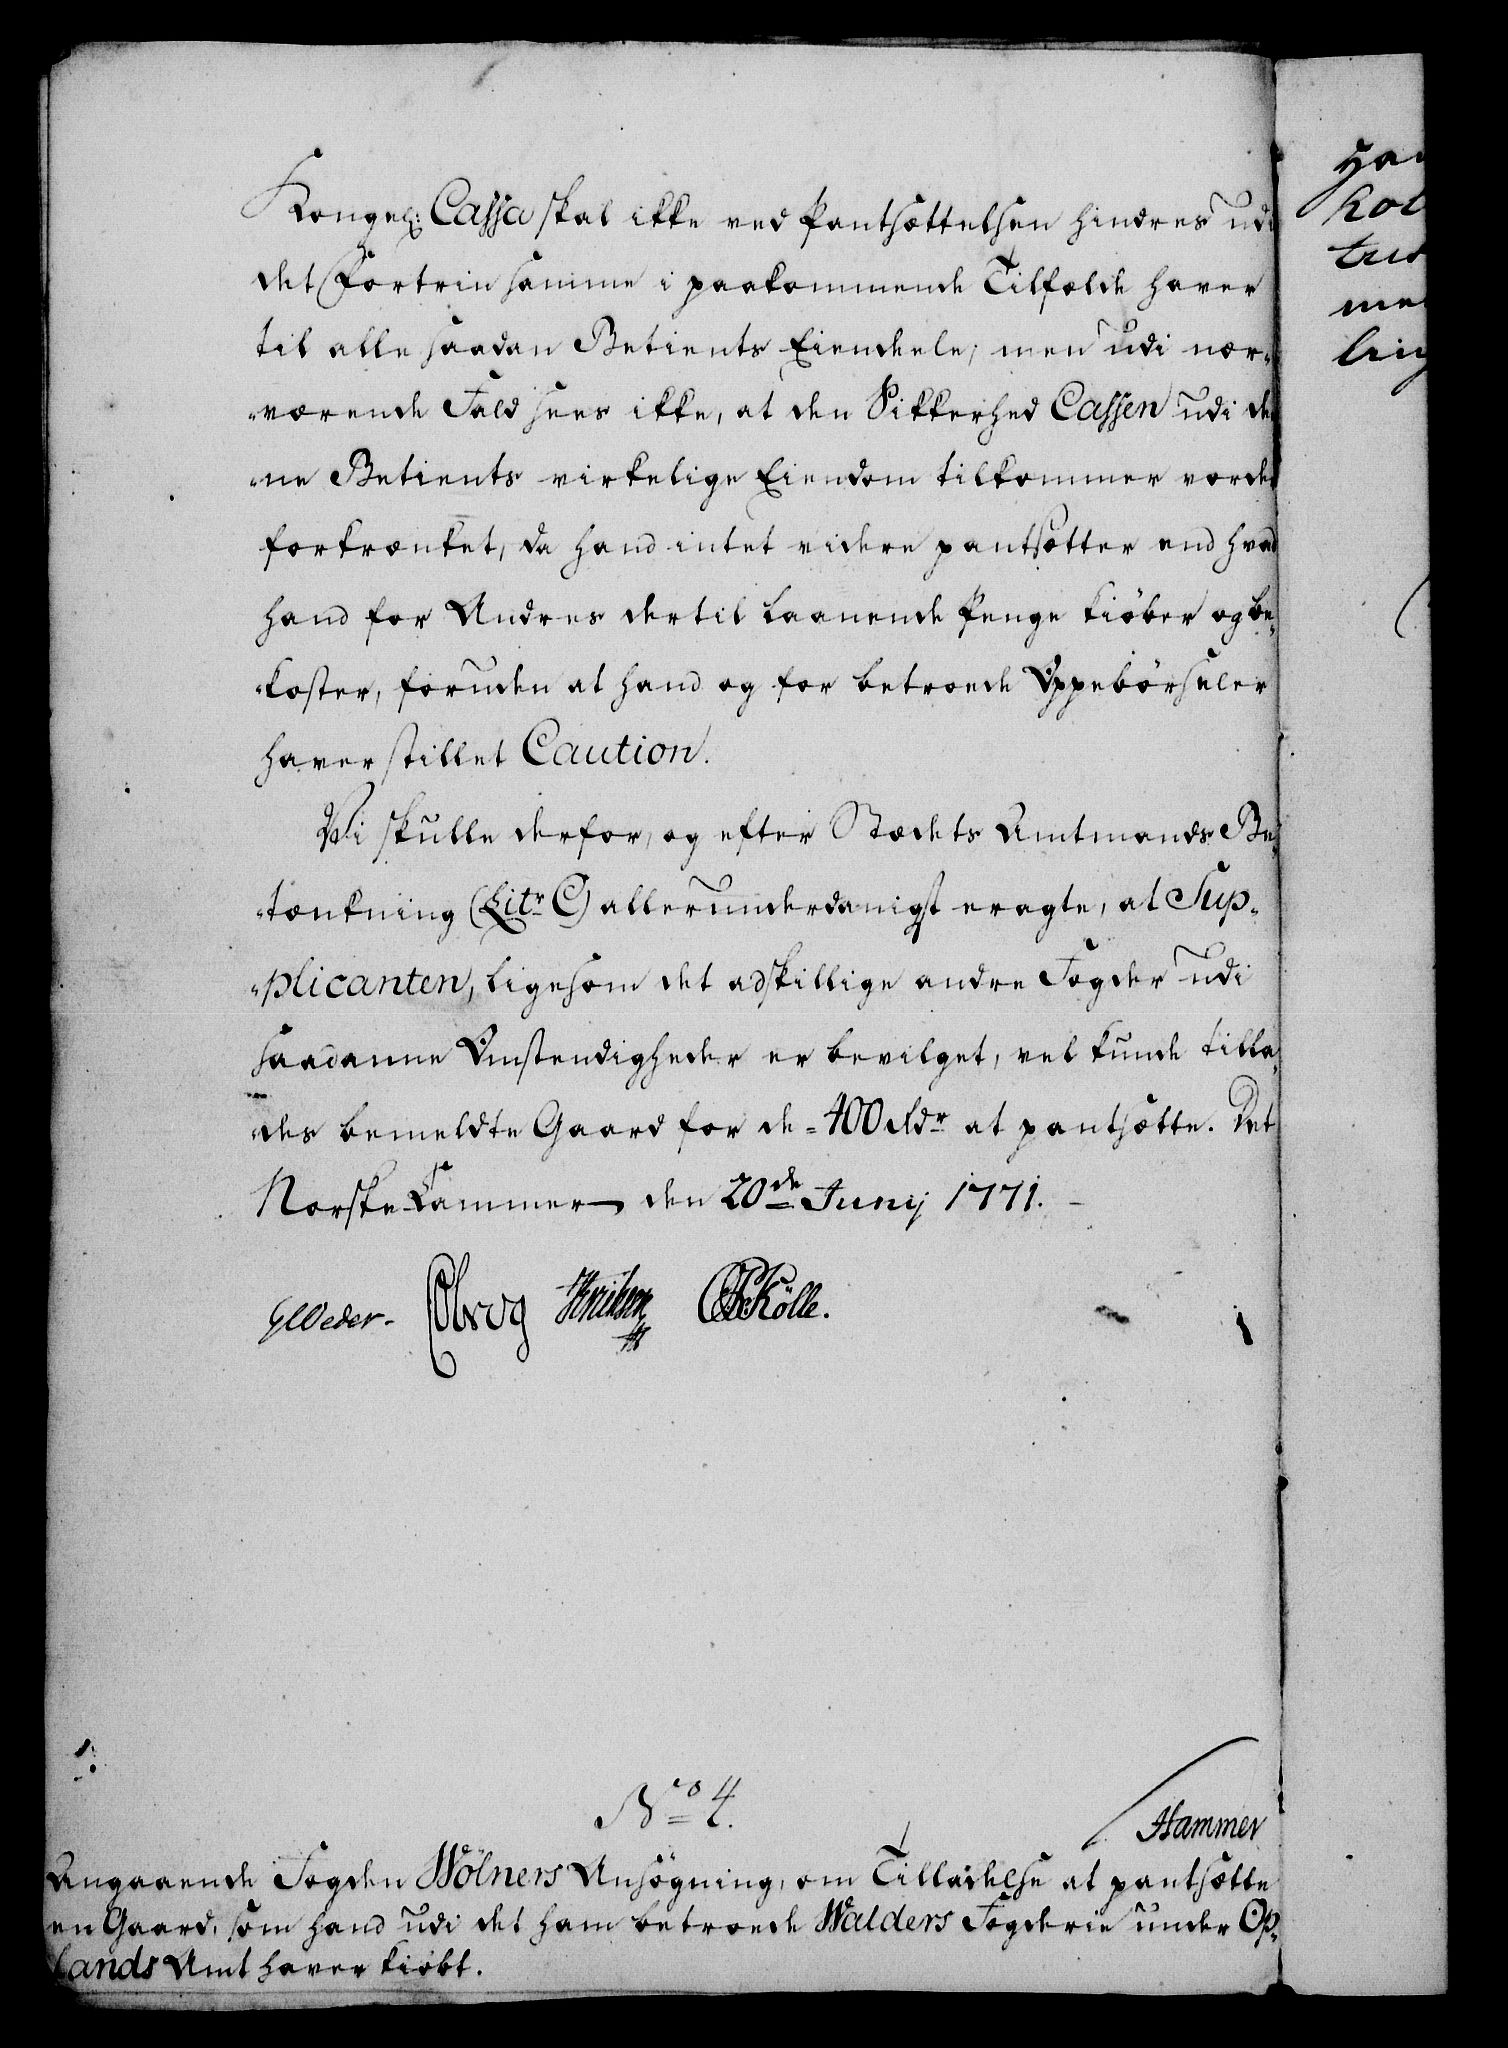 Kongel: Cassa skal ikke ved Pantsættelsen hindres udi
det Fortrin samme i paakommende Tilfælde haver
til alle saadan Betients Eiendeele; men udi nær-
-værende Fald sees ikke, at den Sikkerhed Cassen udi den-
-ne Betients virkelige Eiendom tilkommer vorder
forkrænket, da hand intet videre pantsætter end hvad
hand for Andres dertil laanende Penge kiøber og be-
-koster, foruden at hand og for betroede Oppebörseler
haver stillet Caution.
Vi skulle derfor, og efter Stædets Amtmands Be-
-tænkning (Litr C) allerunderdanigst eragte, at Sup-
-plicanten, ligesom det adskillige andre Fogder udi
saadanne Omstendigheder er bevilget, vel kunde tilla-
-des bemeldte Gaard for de 400 Rdr at pantsætte. Det
Norske Cammer den 20de Junij 1771.
CSKölle.
No 4.
Hammer
Angaaende Fogden Wölners Ansögning, om Tilladelse at pantsætte
en Gaard, som hand udi det ham betroede Walders Fogderie under Op-
lands Amt haver kiöbt.